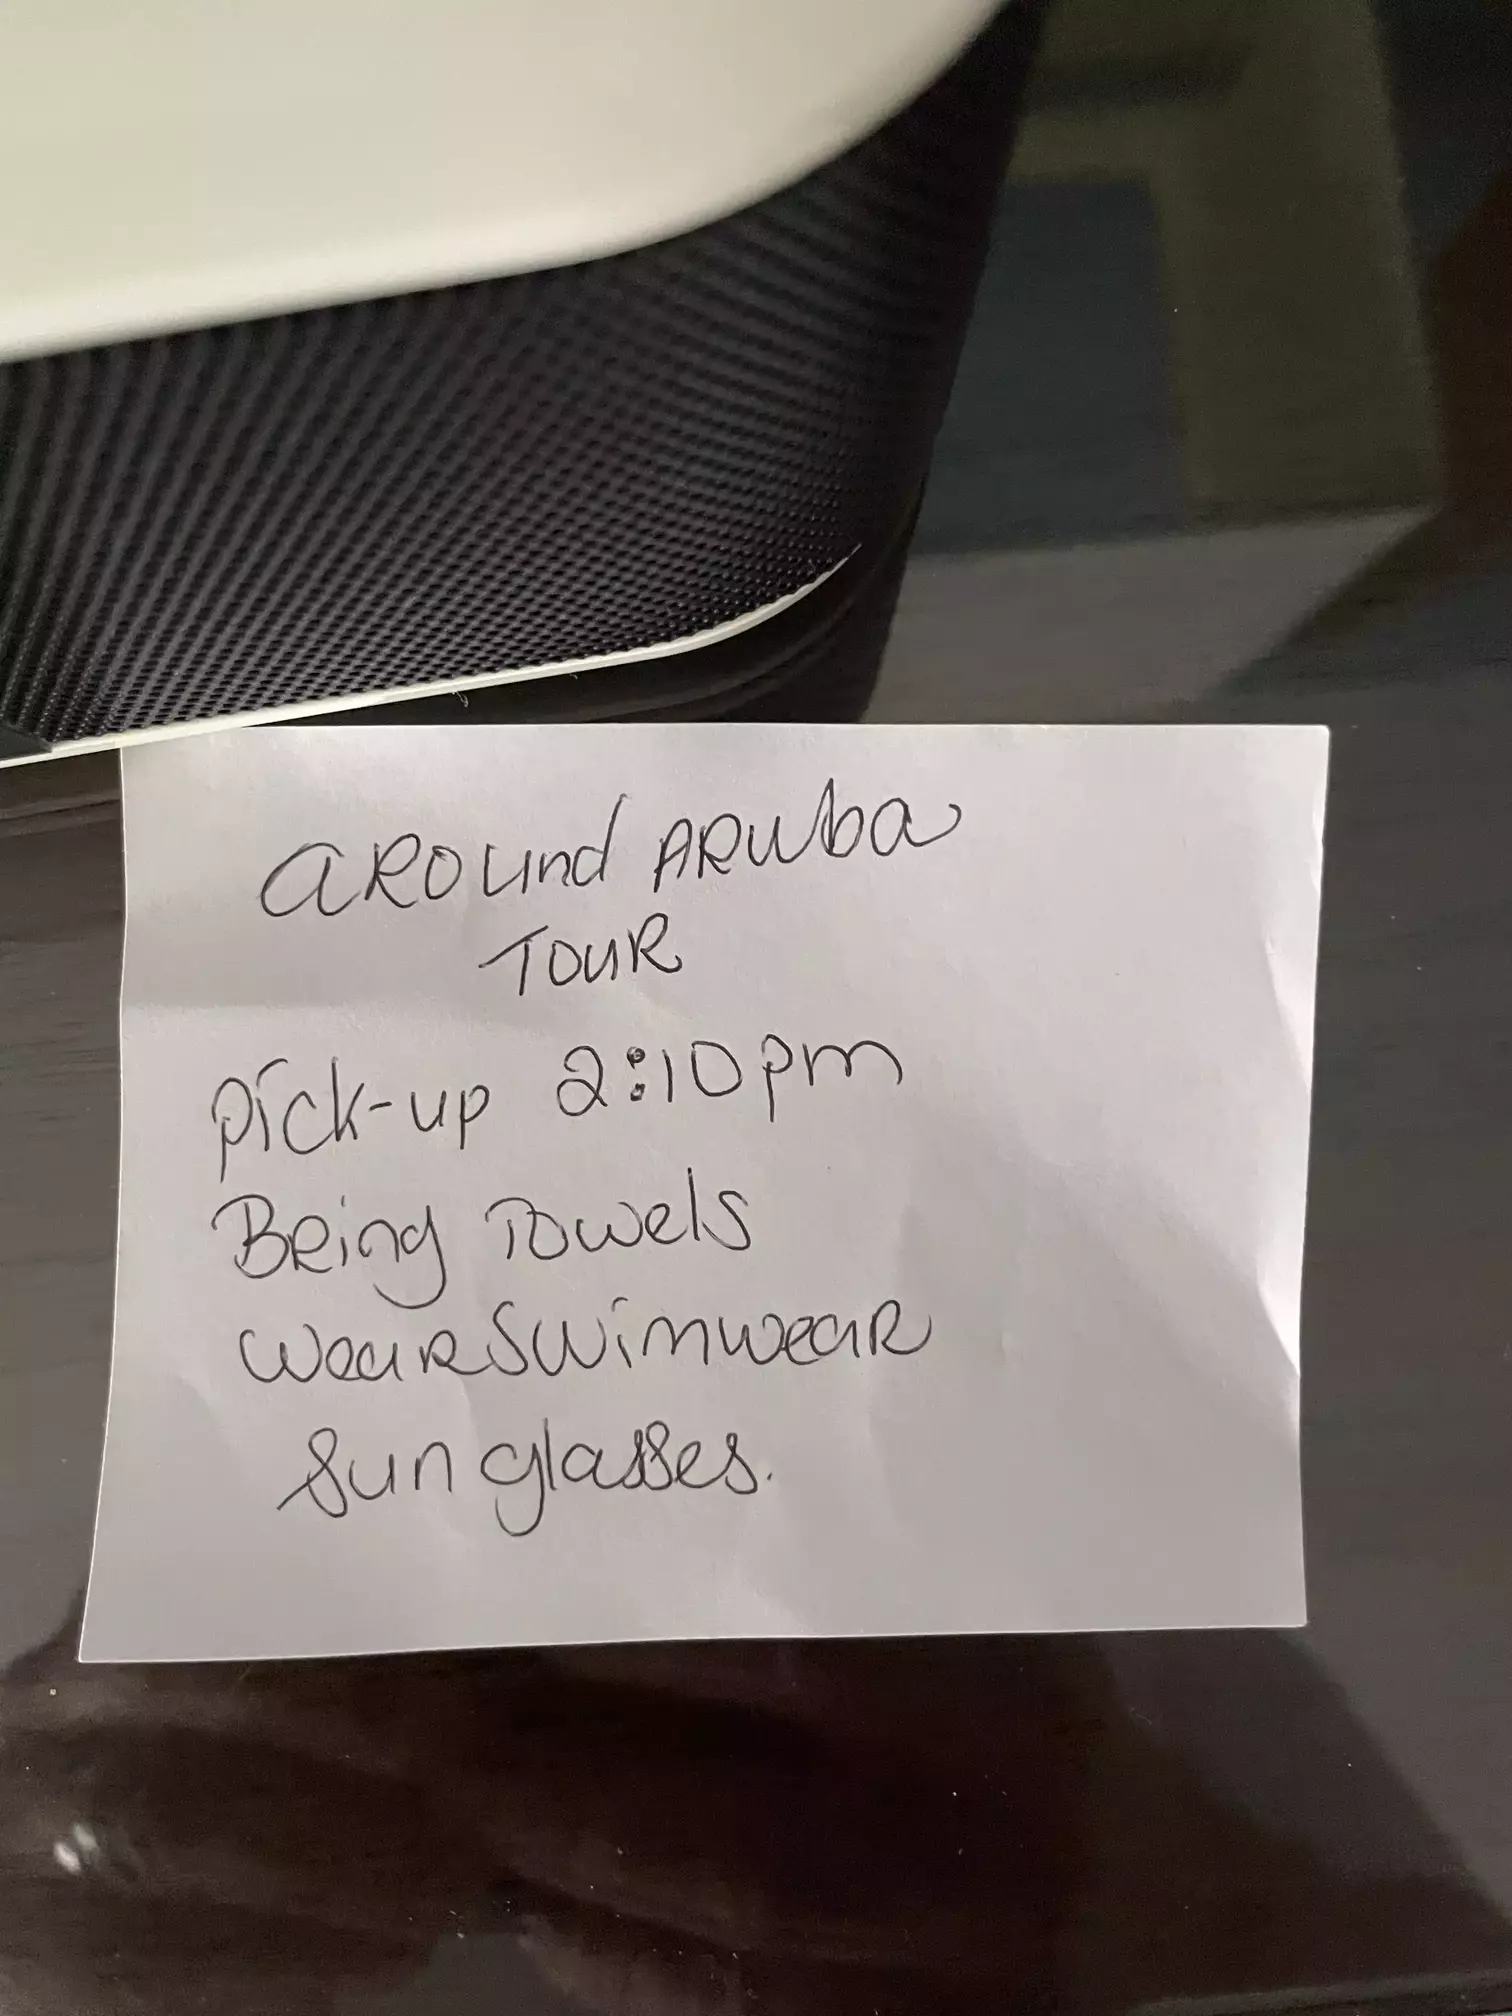 aROund ARuba
TOUR
pick-up 2:10pm
BRing Towels
weaR Swimwear
Sunglasses.